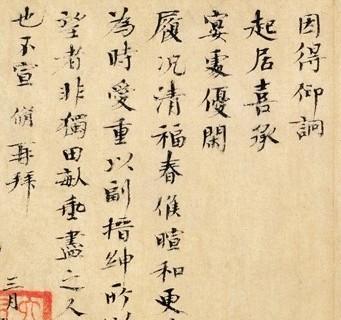 因得仰詗
起居喜承
宴處優閑
履況清福春候暄和更
為時愛重以副搢紳所以
望者非獨田畝垂盡之人
也不宣脩再拜
三月